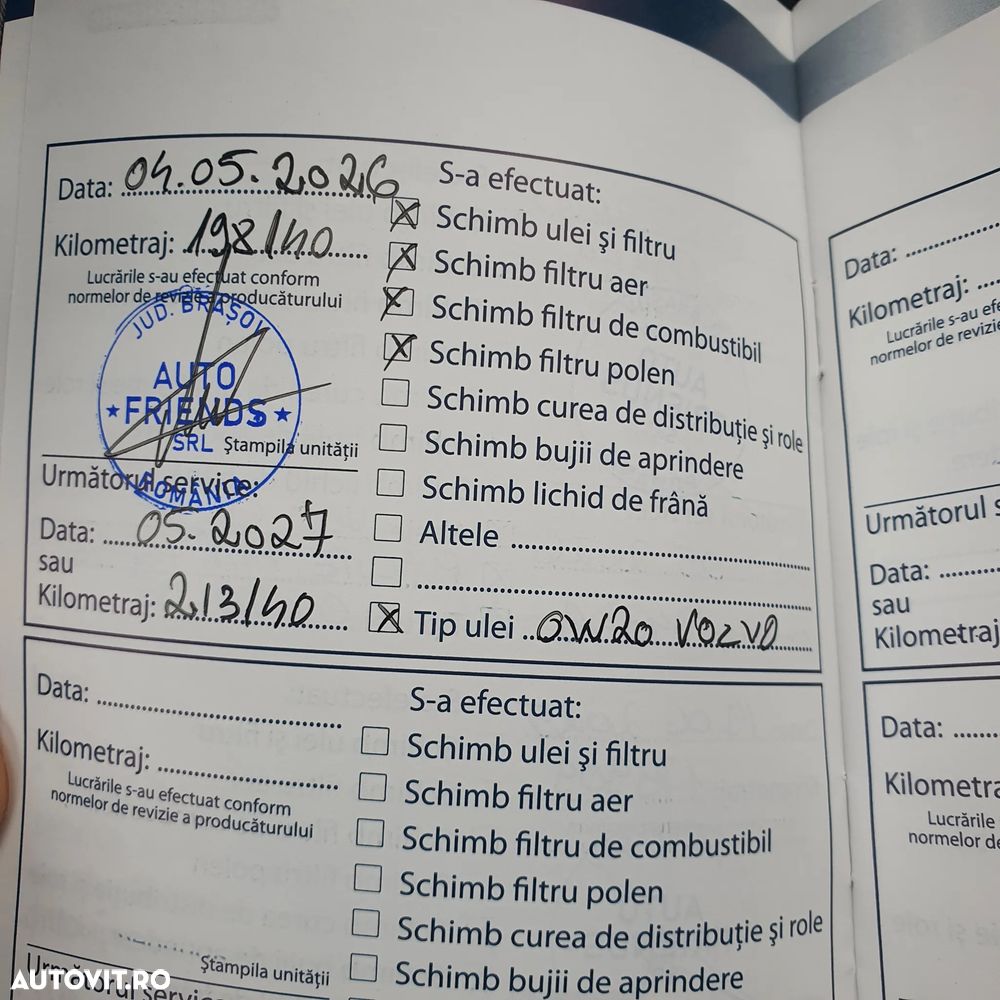 Data: 04.05.2026
Kilometraj: 198140
Lucrările s-au efectuat conform
normelor de revizie a producăturului
JUD. BRAȘOV
AUTO
FRIENDS
SRL
ROMÂNIA
Ștampila unității
Următorul service:
Data: 05.2027
sau
Kilometraj: 213140
S-a efectuat:
X Schimb ulei și filtru
X Schimb filtru aer
X Schimb filtru de combustibil
X Schimb filtru polen
Schimb curea de distribuție și role
Schimb bujii de aprindere
Schimb lichid de frână
Altele
X Tip ulei 0W20 VOLVO
Data:
Kilometraj:
Lucrările s-au efectuat conform
normelor de revizie a producăturului
Ștampila unității
Următorul service
S-a efectuat:
Schimb ulei și filtru
Schimb filtru aer
Schimb filtru de combustibil
Schimb filtru polen
Schimb curea de distribuție și role
Schimb bujii de aprindere
Data:
Kilometraj:
Lucrările s-au efe
normelor de revizie
Următorul s
Data:
sau
Kilometraj
Data:
Kilometra
Lucrările
normelor de
AUTOVIT.RO